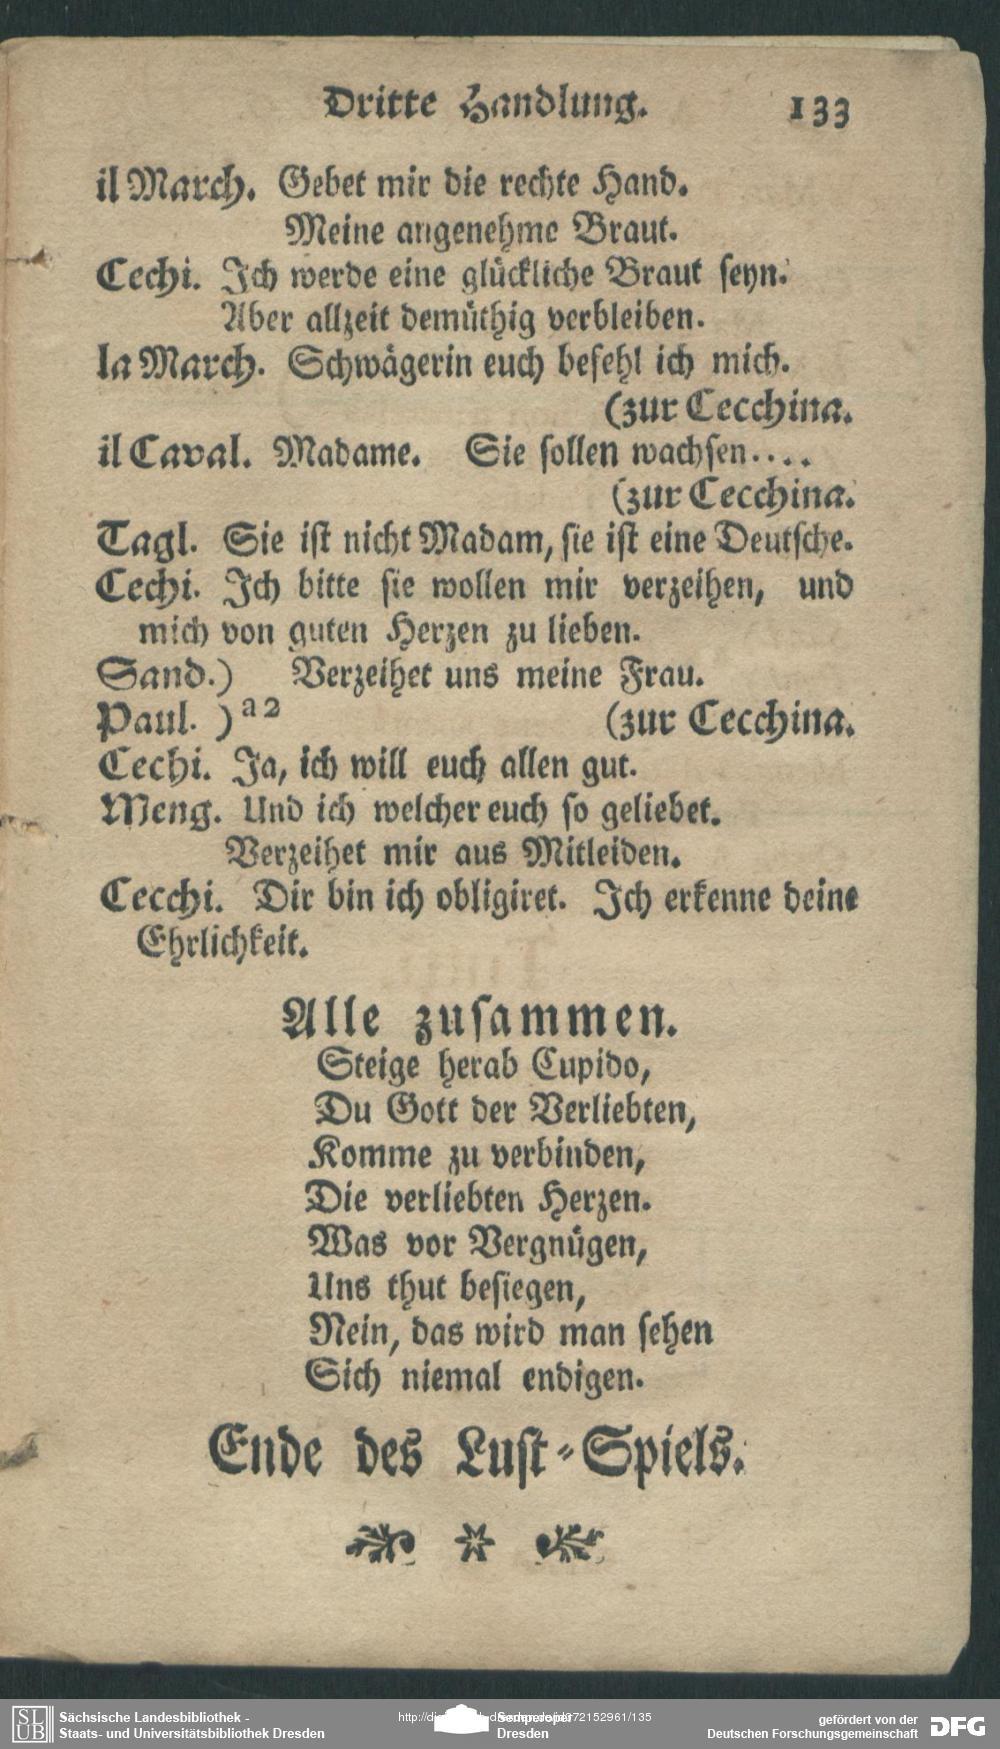 Dritte Handlung. 133
il March. Gebet mir die rechte Hand.
Meine angenehme Braut.
Cechi. Ich werde eine glückliche Braut seyn.
Aber allzeit demüthig verbleiben.
la March. Schwägerin euch befehl ich mich.
(zur Cecchina.
il Caval. Madame. Sie sollen wachsen....
(zur Cecchina.
Tagl. Sie ist nicht Madam, sie ist eine Deutsche.
Cechi. Ich bitte sie wollen mir verzeihen, und
mich von guten Herzen zu lieben.
Sand.) Verzeihet uns meine Frau.
Paul. ) a 2 (zur Cecchina.
Cechi. Ja, ich will euch allen gut.
Meng. Und ich welcher euch so geliebet.
Verzeihet mir aus Mitleiden.
Cecchi. Dir bin ich obligiret. Ich erkenne deine
Ehrlichkeit.
Alle zusammen.
Steige herab Cupido,
Du Gott der Verliebten,
Komme zu verbinden,
Die verliebten Herzen.
Was vor Vergnügen,
Uns thut besiegen,
Nein, das wird man sehen
Sich niemal endigen.
Ende des Lust-Spiels.
SLUB
Sächsische Landesbibliothek -
Staats- und Universitätsbibliothek Dresden
Semperoper
Dresden
gefördert von der
Deutschen Forschungsgemeinschaft
DFG